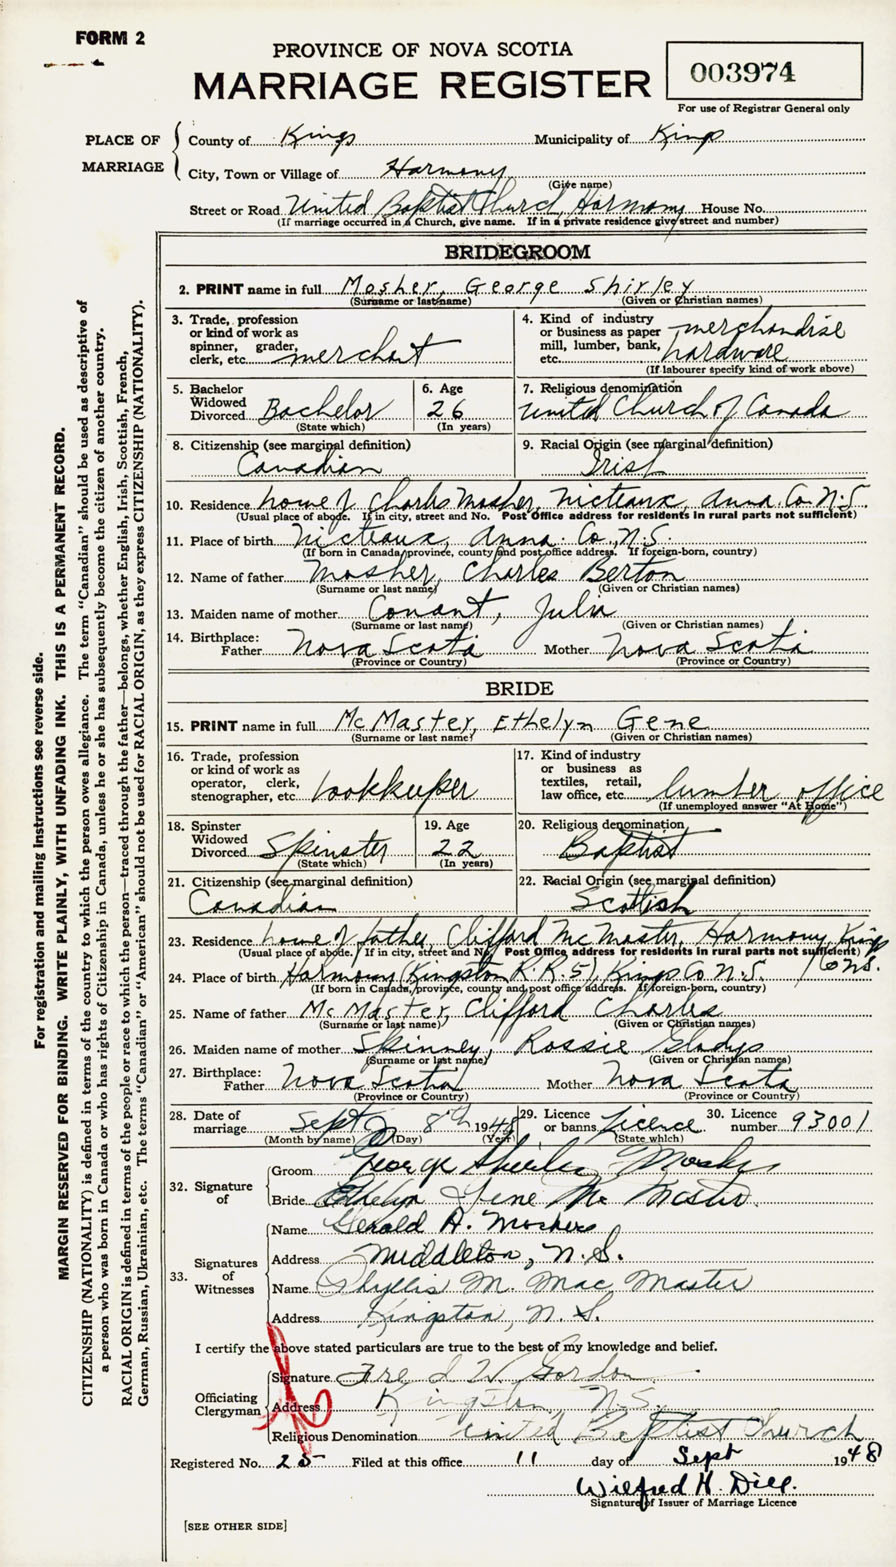 FORM 2
PROVINCE OF NOVA SCOTIA
MARRIAGE REGISTER
003974
For use of Registrar General only
PLACE OF MARRIAGE
County of Kings Municipality of Kings
City, Town or Village of Harmony
(Give name)
Street or Road United Baptist Church, Harmony House No.
(If marriage occurred in a Church, give name. If in a private residence give street and number)
BRIDEGROOM
2. PRINT name in full Mosher, George Shirley
(Surname or last name) (Given or Christian names)
3. Trade, profession or kind of work as spinner, grader, clerk, etc. merchant
4. Kind of industry or business as paper mill, lumber, bank, etc. merchandise hardware
(If labourer specify kind of work above)
5. Bachelor Widowed Divorced Bachelor
(State which)
6. Age 26
(In years)
7. Religious denomination
United Church of Canada
8. Citizenship (see marginal definition)
Canadian
9. Racial Origin (see marginal definition)
Irish
10. Residence home of Charles Mosher, Nictaux, Anna. Co. N.S.
(Usual place of abode. If in city, street and No. Post Office address for residents in rural parts not sufficient)
11. Place of birth Nictaux, Anna. Co., N.S.
(If born in Canada, province, county and post office address. If foreign-born, country)
12. Name of father Mosher, Charles Berton
(Surname or last name) (Given or Christian names)
13. Maiden name of mother Conant, Julia
(Surname or last name) (Given or Christian names)
14. Birthplace:
Father Nova Scotia Mother Nova Scotia
(Province or Country) (Province or Country)
BRIDE
15. PRINT name in full McMaster, Ethelyn Gene
(Surname or last name) (Given or Christian names)
16. Trade, profession or kind of work as operator, clerk, stenographer, etc. bookkeeper
17. Kind of industry or business as textiles, retail, law office, etc. lumber office
(If unemployed answer "At Home")
18. Spinster Widowed Divorced Spinster
(State which)
19. Age 22
(In years)
20. Religious denomination
Baptist
21. Citizenship (see marginal definition)
Canadian
22. Racial Origin (see marginal definition)
Scottish
23. Residence home of father, Clifford McMaster, Harmony Kings Co NS.
(Usual place of abode. If in city, street and No. Post Office address for residents in rural parts not sufficient)
24. Place of birth Harmony (Kingston R.R. 5), Kings Co N.S.
(If born in Canada, province, county and post office address. If foreign-born, country)
25. Name of father McMaster, Clifford Charles
(Surname or last name) (Given or Christian names)
26. Maiden name of mother Skinney, Rossie Gladys
(Surname or last name) (Given or Christian names)
27. Birthplace:
Father Nova Scotia Mother Nova Scota
(Province or Country) (Province or Country)
28. Date of marriage Sept 8th 1948
(Month by name) (Day) (Year)
29. Licence or banns Licence
(State which)
30. Licence number 93001
32. Signature of
Groom George Shirley Mosher
Bride Ethelyn Gene McMaster
33. Signatures of Witnesses
Name Gerald A. Moshers
Address Middleton, N.S.
Name Phyllis M. MacMaster
Address Kingston, N.S.
I certify the above stated particulars are true to the best of my knowledge and belief.
Officiating Clergyman
Signature Gordon
Address Kingston, N.S.
Religious Denomination United Baptist Church
Registered No. 25 Filed at this office 11 day of Sept 1948
Wilfred H. Dill.
Signature of Issuer of Marriage Licence
[SEE OTHER SIDE]
For registration and mailing instructions see reverse side.
MARGIN RESERVED FOR BINDING. WRITE PLAINLY, WITH UNFADING INK. THIS IS A PERMANENT RECORD.
CITIZENSHIP (NATIONALITY) is defined in terms of the country to which the person owes allegiance. The term "Canadian" should be used as descriptive of
a person who was born in Canada or who has rights of Citizenship in Canada, unless he or she has subsequently become the citizen of another country.
RACIAL ORIGIN is defined in terms of the people or race to which the person—traced through the father—belongs, whether English, Irish, Scottish, French,
German, Russian, Ukrainian, etc. The terms "Canadian" or "American" should not be used for RACIAL ORIGIN, as they express CITIZENSHIP (NATIONALITY).